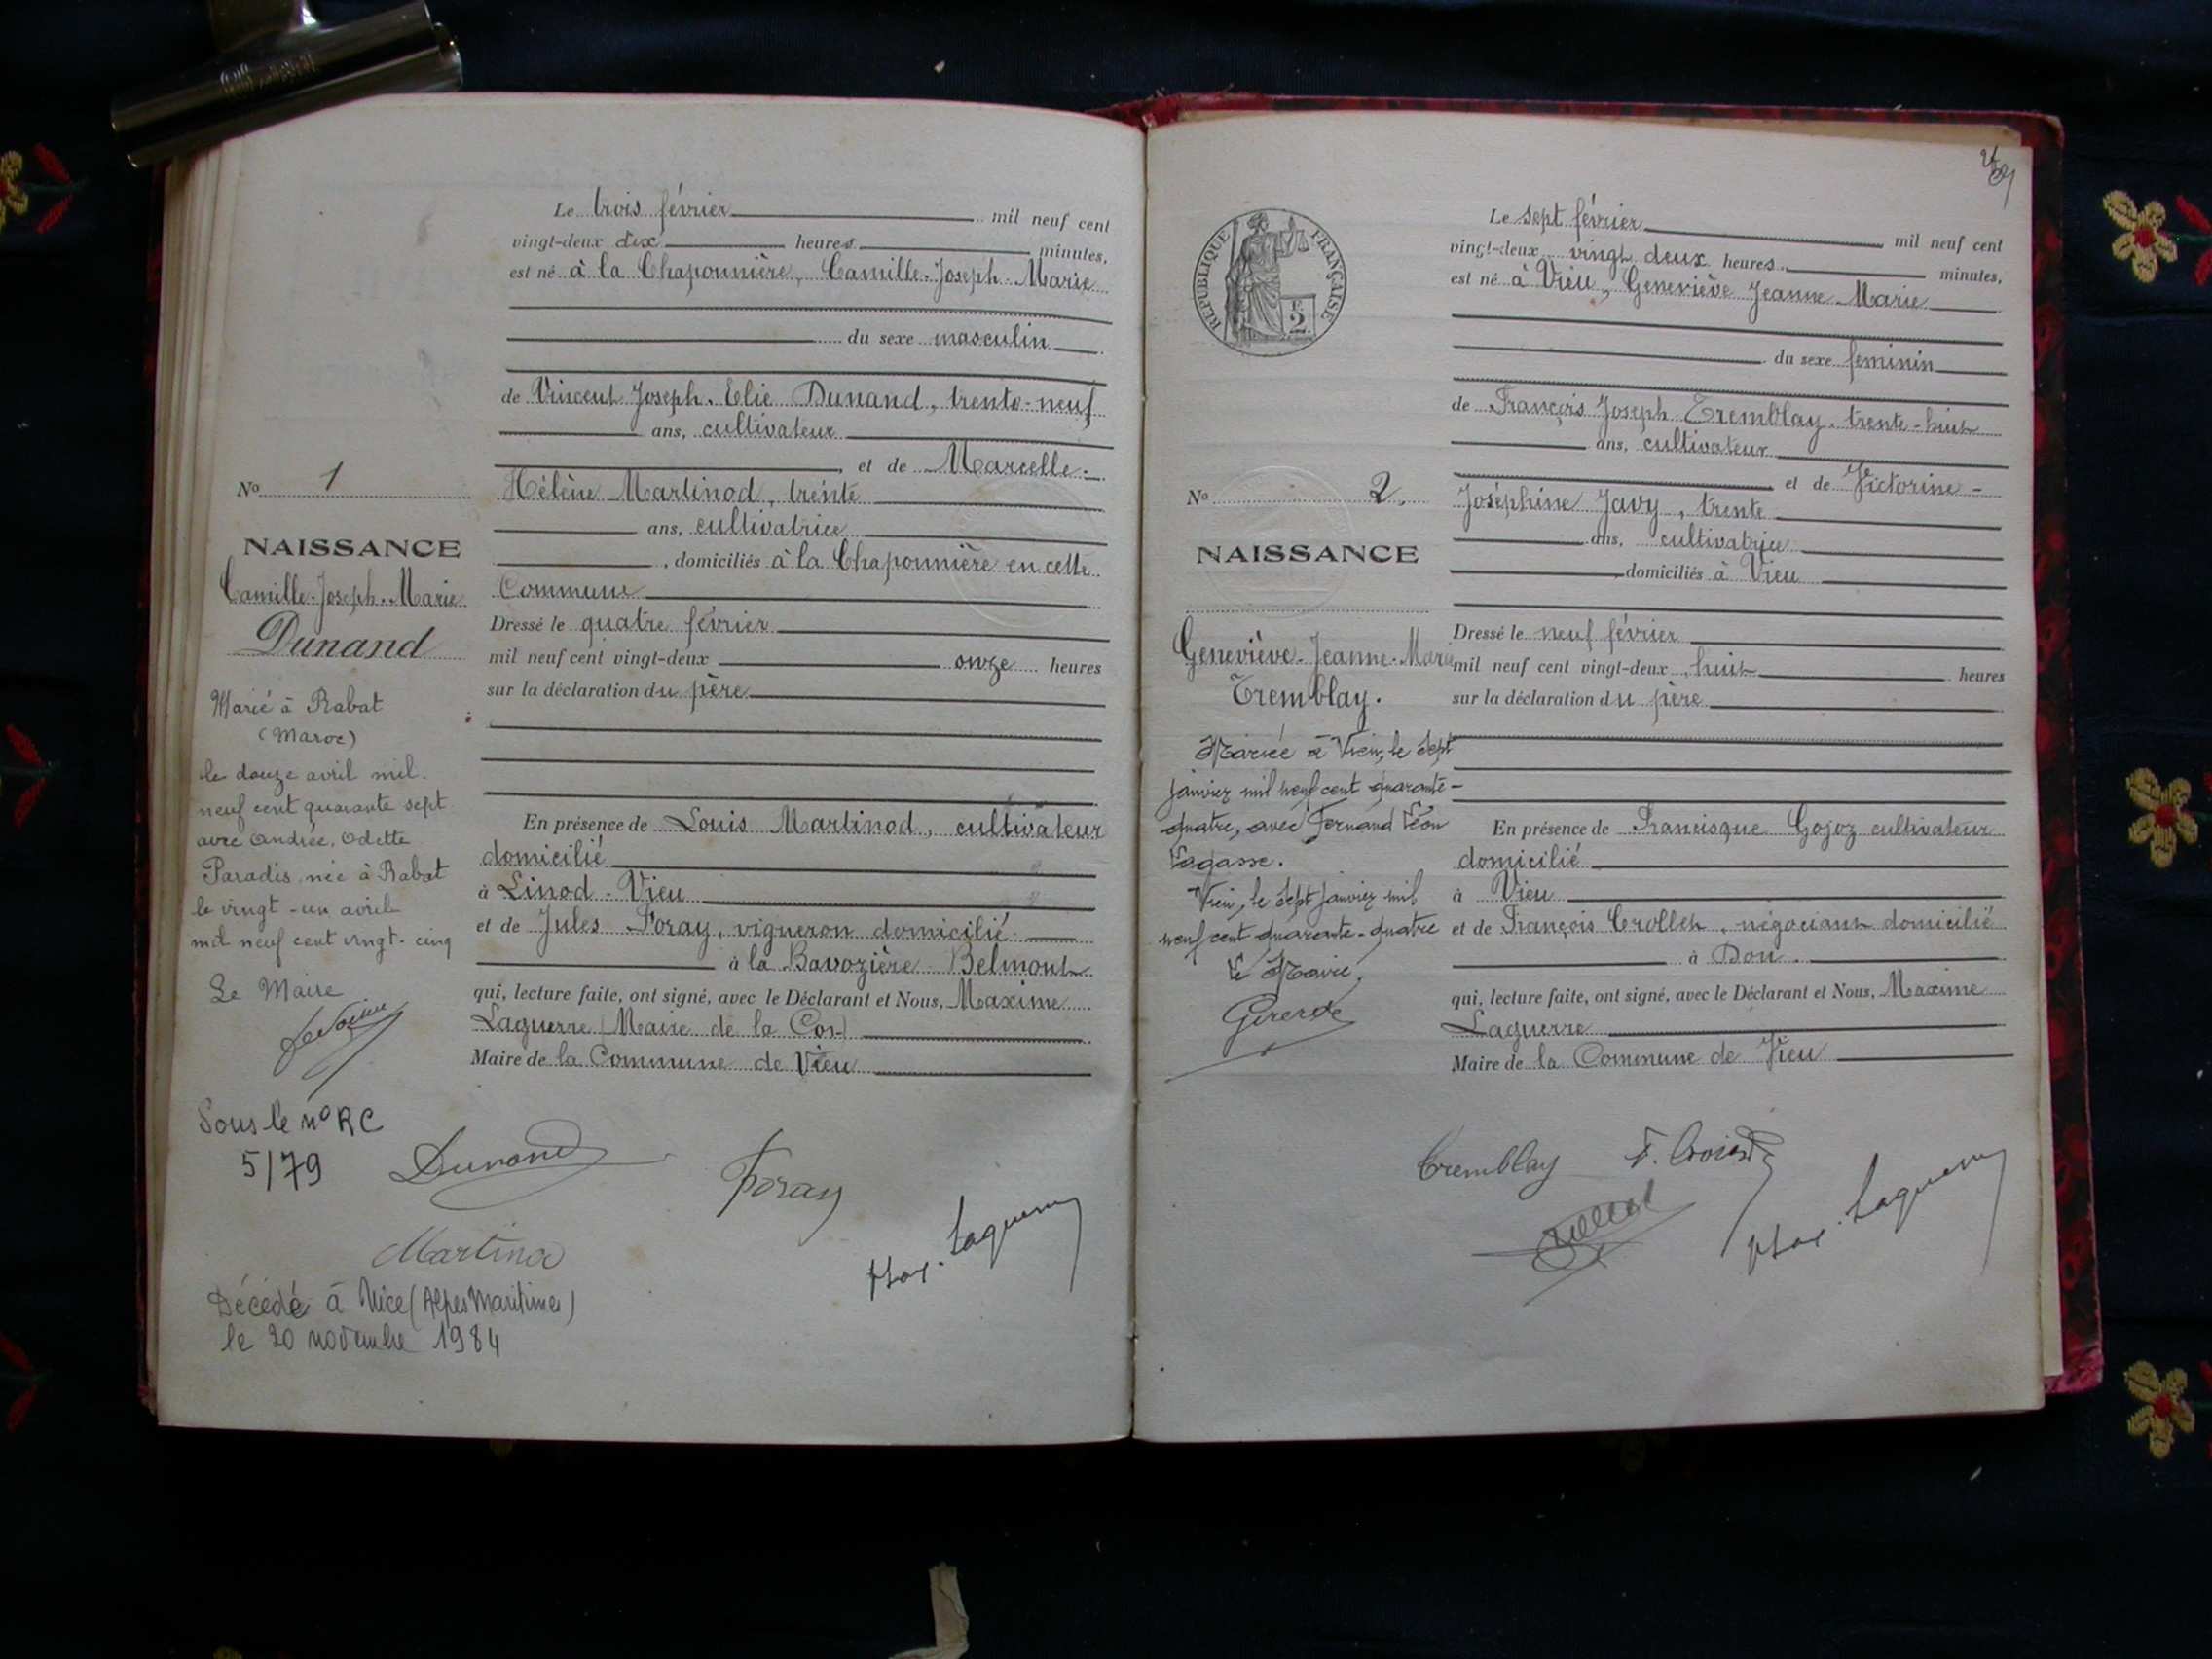 Le trois février mil neuf cent
vingt-deux dix heures minutes,
est né à la Chaponnière, Camille-Joseph-Marie
du sexe masculin
de Vincent Joseph. Elie Dunand, trente-neuf
ans, cultivateur
et de Marcelle-
Hélène Martinod, trente
ans, cultivatrice
, domiciliés à la Chaponnière en cette
Commune
Dressé le quatre février
mil neuf cent vingt-deux onze heures
sur la déclaration du père
En présence de Louis Martinod, cultivateur
domicilié
à Linod-Vieu
et de Jules Foray, vigneron domicilié
à la Bavozière Belmont
qui, lecture faite, ont signé, avec le Déclarant et Nous, Maxime
Laguerre (Maire de la Com)
Maire de la Commune de Vieu
No 1
NAISSANCE
Camille-Joseph-Marie
Dunand
Marié à Rabat
(Maroc)
le douze avril mil
neuf cent quarante sept
avec Andrée, Odette
Paradis née à Rabat
le vingt-un avril
mil neuf cent vingt-cinq
Le Maire
Sous le n° RC
5/79
Dunand
Foray
Martinod
Max. Laguerre
Décédé à Nice (Alpes Maritimes)
le 20 novembre 1984
RÉPUBLIQUE FRANÇAISE
2
Le sept février mil neuf cent
vingt-deux vingt deux heures minutes,
est né à Vieu, Geneviève Jeanne-Marie
du sexe feminin
de François Joseph Tremblay, trente-huit
ans, cultivateur
et de Victorine-
Joséphine Javy, trente
ans, cultivatrice
domiciliés à Vieu
Dressé le neuf février
mil neuf cent vingt-deux, huit heures
sur la déclaration du père
En présence de Francisque Gojoz cultivateur
domicilié
à Vieu
et de François Crollet, négociant domicilié
à Don
qui, lecture faite, ont signé, avec le Déclarant et Nous, Maxime
Laguerre
Maire de la Commune de Vieu
No 2.
NAISSANCE
Geneviève-Jeanne-Marie
Tremblay.
Mariée à Vieu, le sept
janvier mil neuf cent quarante-
quatre, avec Fernand Léon
Lagasse.
Vieu, le sept janvier mil
neuf cent quarante-quatre
Le Maire,
Tremblay
Max. Laguerre